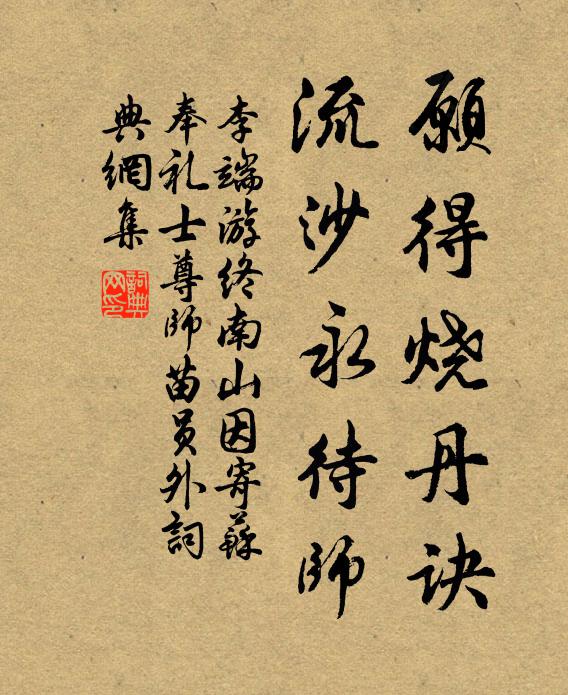 願得烧丹诀
流沙永待師
李端游终南山因寄蘇
奉礼士尊師苗员外詞
典網集
詞典
网印